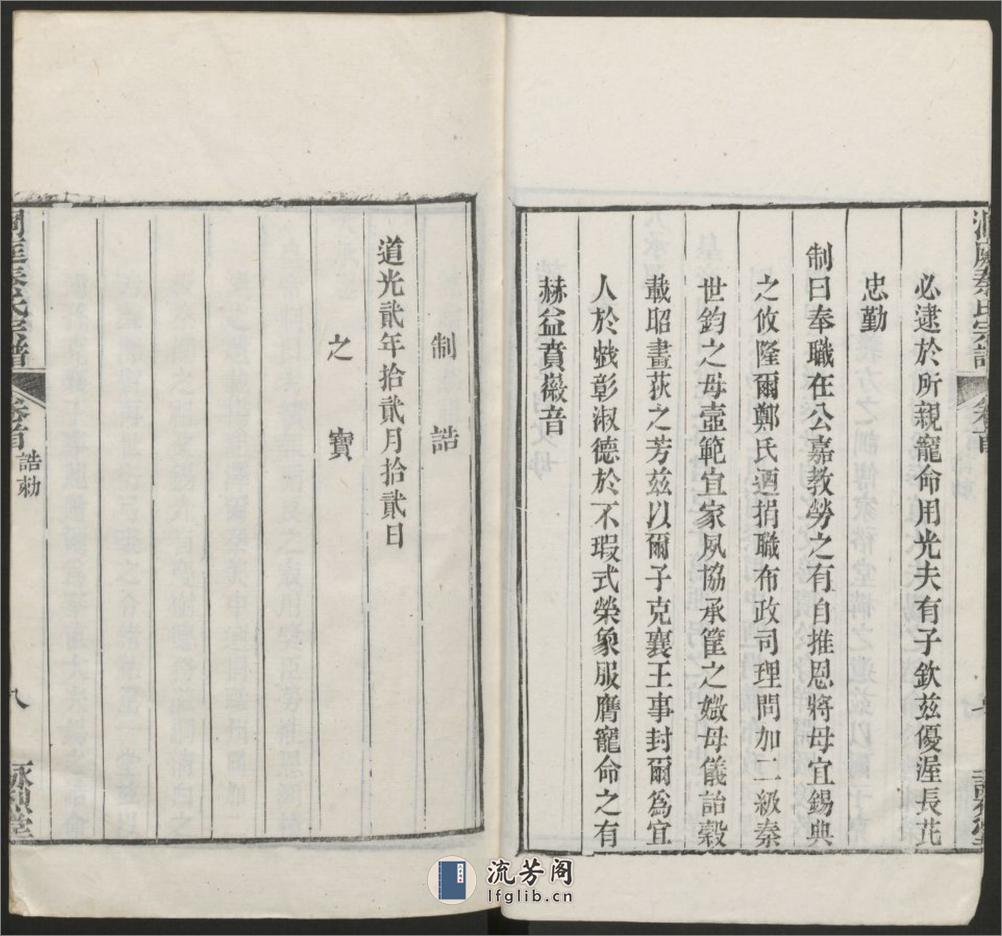 必逮於所親寵命用光夫有子欽兹優渥長茂
忠勤
制曰奉職在公嘉教勞之有自推恩將母宜錫典
之攸隆爾鄭氏迺捐職布政司理問加二級秦
世鈞之母壼範宜家夙協承筐之媺母儀詒穀
載昭畫荻之芳兹以爾子克襄王事封爾爲宜
人於戲彰淑德於不瑕式榮象服膺寵命之有
赫益賁徽音
洞庭秦氏宗譜
卷首
制誥
道光貳年拾貳月拾貳日
之寶
洞庭秦氏宗譜
卷首
誥勅
八
詠烈堂
流芳阁
lfglib.cn